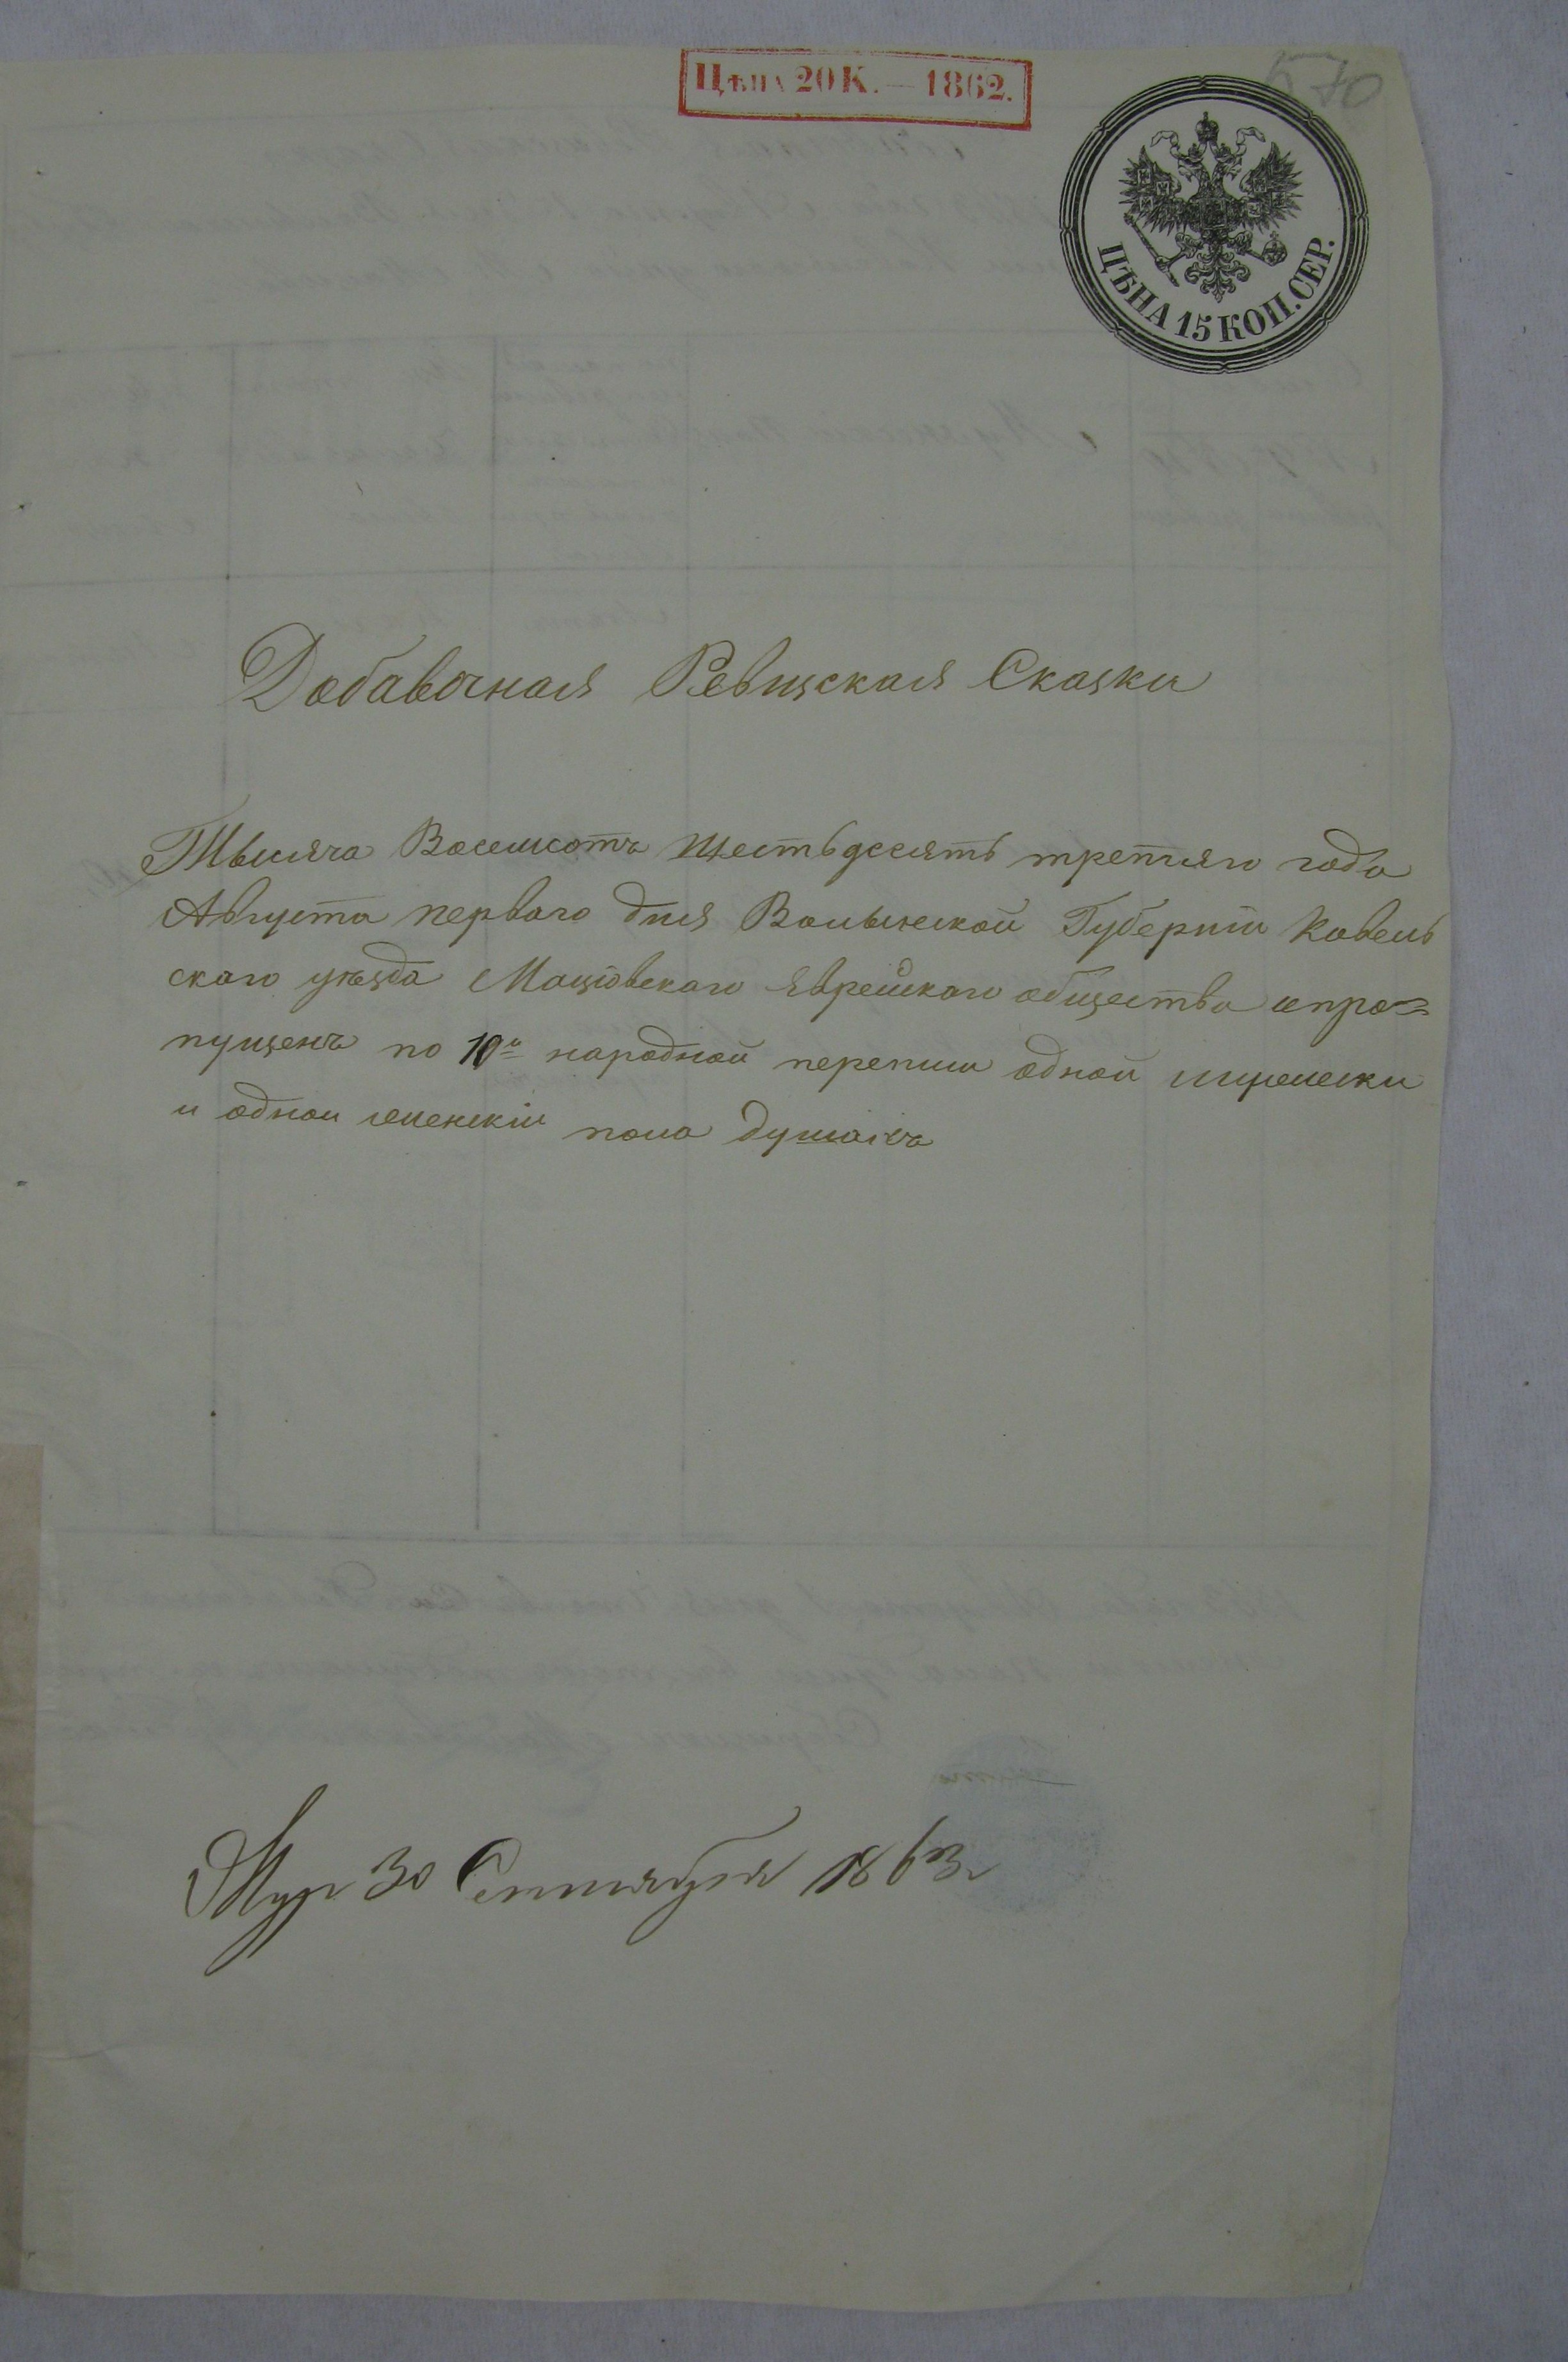 Цѣна 20 К. — 1862.
570
ЦѢНА 15 КОП. СЕР.
Добавочная Ревизская Сказка
Тысяча Восемсотъ шестьдесятъ третьяго года
Августа перваго дня Волынской Губерніи Ковель
скаго уѣзда Маціовскаго Еврейскаго общества о про=
пущенъ по 10й народной переписи одной мужески
и одной женскій пола душахъ
30 Сентября 1863